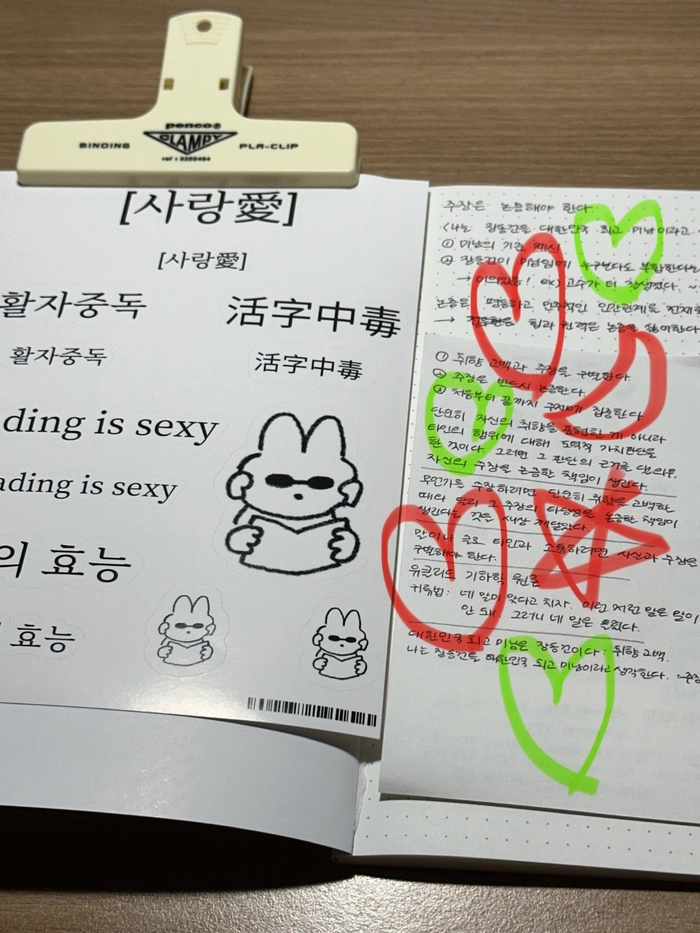 penco®
BINDING CLAMPY PLA-CLIP
[사랑愛]
[사랑愛]
활자중독
活字中毒
활자중독
活字中毒
ding is sexy
ading is sexy
의 효능
효능
주장은 논증해야 한다.
<나는 장동건을 대한민국 최고 미남이라고
① 미남의 기준 제시
② 장동건이 미남임에 누구라도 부합한다는
→ 이의있음! ex) 고수가 더 잘생겼다.
논증은 평등하고 민주적인 인간관계를 전제
→ 힘과 권력은 논증을
① 취향 고백과 주장을 구별한다.
② 주장은 반드시 논증한다.
③ 처음부터 끝까지 주제에 집중한다.
단순히 자신의 취향을 표현한 게 아니라
타인의 행위에 대해 도덕적 가치판단을
한 것이다. 그러면 그 판단의 근거를
자신의 주장을 논증할 책임이 생긴다.
무언가를 주장하려면 단순히 취향을 고백할
때와 달리 그 주장의 타당성을 논증할 책임이
생긴다는 것을 새삼 깨달았다.
말이나 글로 타인과 소통하려면 사실과 주장을
구별해야 한다.
유클리드 기하학 원론
귀류법: 네 말이 맞다고 치자. 이런 저런 말은 말이
안 돼. 그러니 네 말은 틀렸다.
대한민국 최고 미남은 장동건이다: 취향 고백.
나는 장동건을 대한민국 최고 미남이라고 생각한다.